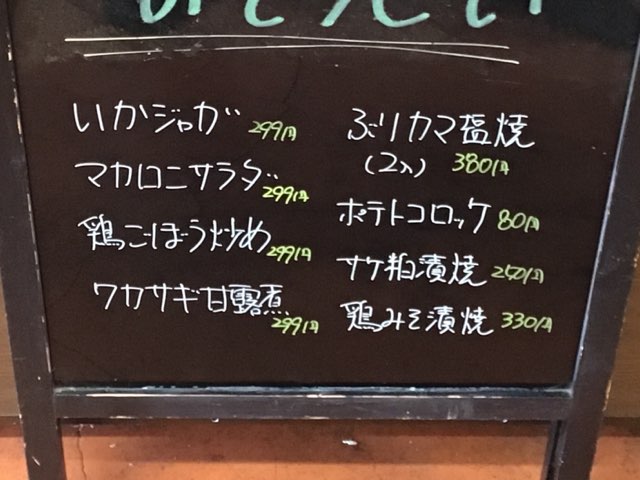 いかジャガ 299円
マカロニサラダ 299円
鶏ごぼう炒め 299円
ワカサギ甘露煮 299円
ぶりカマ塩焼
(2入) 380円
ポテトコロッケ 80円
サケ粕漬焼 250円
鶏みそ漬焼 330円